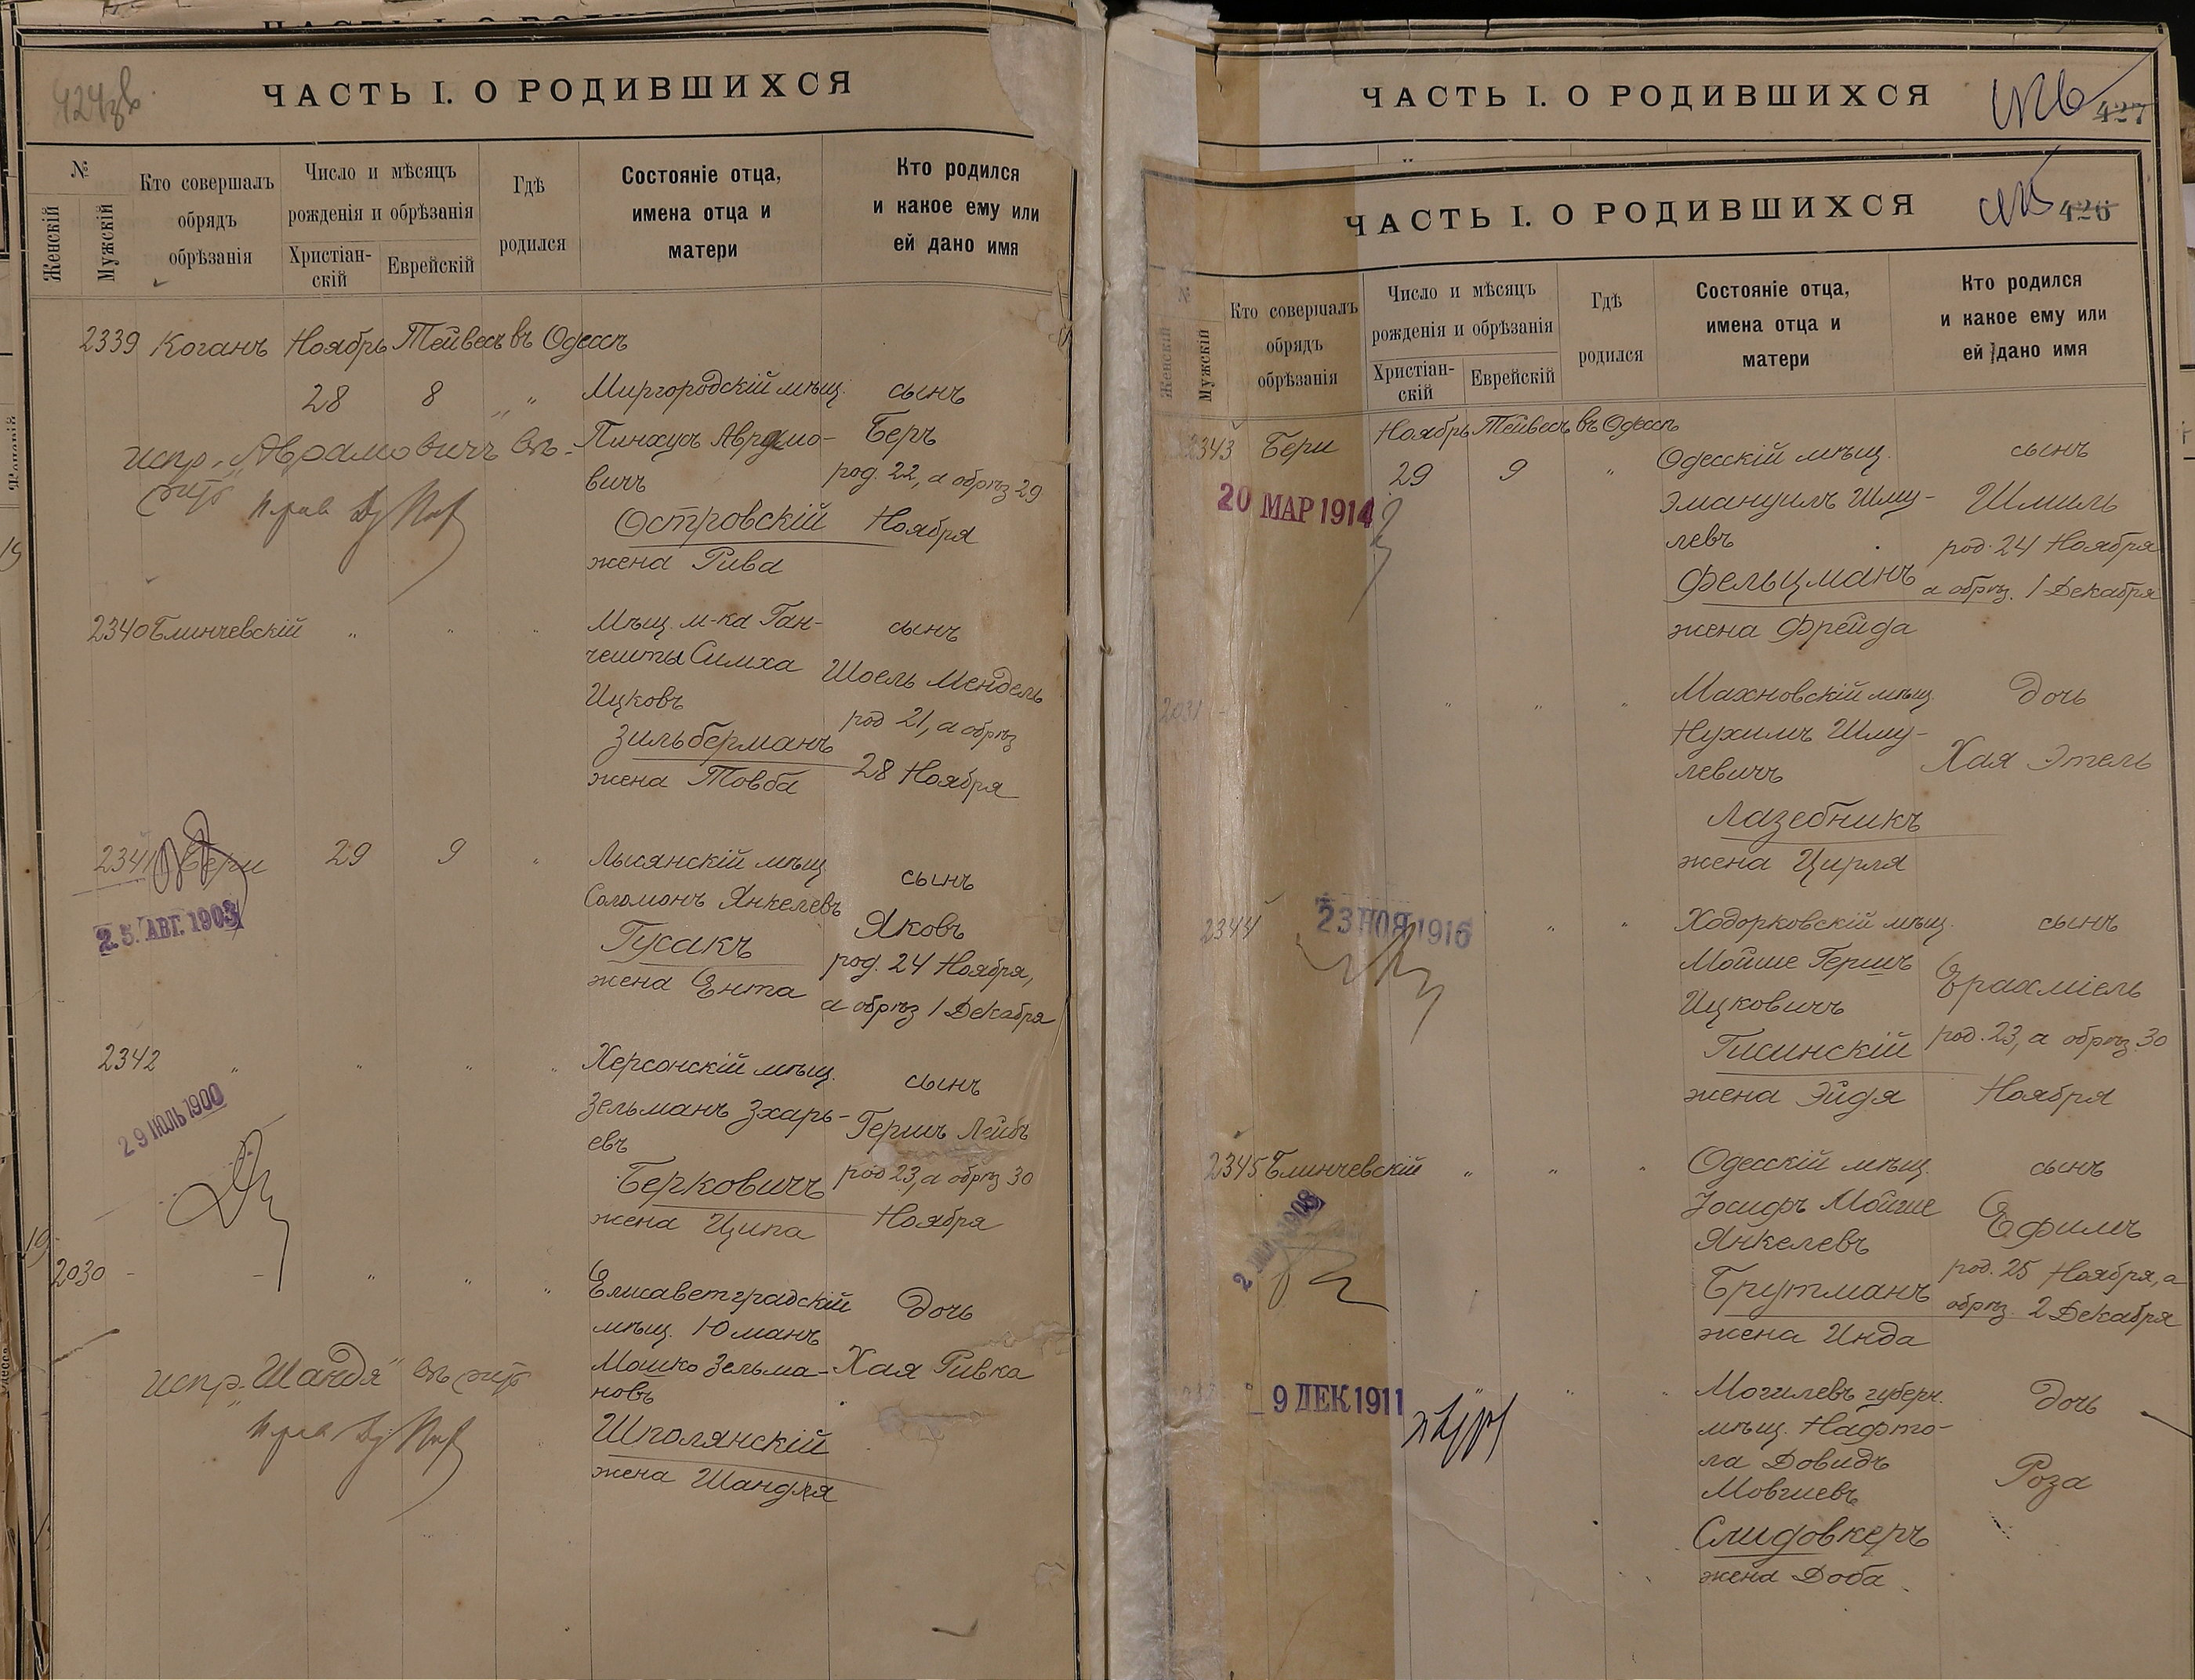 ЧАСТЬ I. О РОДИВШИХСЯ
№
Женскій
Мужскій
Кто совершалъ
обрядъ
обрѣзанія
Число и мѣсяцъ
рожденія и обрѣзанія
Христіан-
скій
Еврейскій
Гдѣ
родился
Состояніе отца,
имена отца и
матери
Кто родился
и какое ему или
ей дано имя
2339 Коганъ Ноябрь Тейвесъ въ Одессѣ
28 8 „ „
Миргородскій мѣщ.
Пинхусъ Аврамо-
вичъ
Островскій
жена Рива
сынъ
Беръ
род. 22, а обрѣз 29
Ноября
испр. „Абрамовичъ
2340 Блинчевскій „ „ „
Мѣщ. м-ка Ган-
чешты Симха
Ицковъ
Зильберманъ
жена Товба
сынъ
Шоель Мендель
род 21, а обрѣз
28 Ноября
2341 Бери 29 9 „
25 АВГ. 1903
Лысянскій мѣщ
Соломонъ Янкелевъ
Гусакъ
жена Ента
сынъ
Яковъ
род. 24 Ноября,
а обрѣз 1 Декабря
2342 „ „ „ „
29 ІЮЛЬ 1900
Херсонскій мѣщ.
Зельманъ Зхарь-
евъ
Берковичъ
жена Ципа
сынъ
Гершъ Лейбъ
род 23, а обрѣз 30
Ноября
2030 - - „ „ „
Елисаветградскій
мѣщ. Юманъ
Мошко Зельма-
новъ
Шполянскій
жена Шандля
дочь
Хая Ривка
испр. „Шандя"
ЧАСТЬ I. О РОДИВШИХСЯ
427
ЧАСТЬ I. О РОДИВШИХСЯ
426
№
Женскій
Мужскій
Кто совершалъ
обрядъ
обрѣзанія
Число и мѣсяцъ
рожденія и обрѣзанія
Христіан-
скій
Еврейскій
Гдѣ
родился
Состояніе отца,
имена отца и
матери
Кто родился
и какое ему или
ей дано имя
2343 Бери Ноябрь Тейвесъ въ Одессѣ
29 9 „
20 МАР 1914
Одесскій мѣщ.
Эмануилъ Шму-
левъ
Фельцманъ
жена Фрейда
сынъ
Шмиль
род. 24 Ноября
а обрѣз. 1 Декабря
2031 - „ „ „
Махновскій мѣщ.
Нухимъ Шму-
левичъ
Лазебникъ
жена Цирля
дочь
Хая Этель
2344 „ „
23 НОЯ 1916
Ходорковскій мѣщ.
Мойше Гершъ
Ицковичъ
Гисинскій
жена Эйдя
сынъ
Ерахміель
род. 23, а обрѣз. 30
Ноября
2345 Блинчевскій „ „ „
Одесскій мѣщ.
Іосифъ Мойше
Янкелевъ
Брутманъ
жена Инда
сынъ
Ефимъ
род. 25 Ноября, а
обрѣз. 2 Декабря
9 ДЕК 1911
Могилевъ губерн.
мѣщ. Нафто-
ла Довидъ
Мовшевъ
Смидовкеръ
жена Доба
дочь
Роза